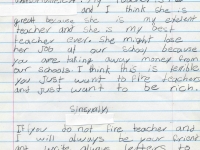 and I think she is
great because she is my exelent
teacher and she is my best
teacher ever. she might lose
her job at our school because
you are taking away money from
our schools. I think this is terrible
you just want to fire teachers
and just want to be rich.
Sinserally
If you do not fire teacher and
I will always be your friend
and write always letters to